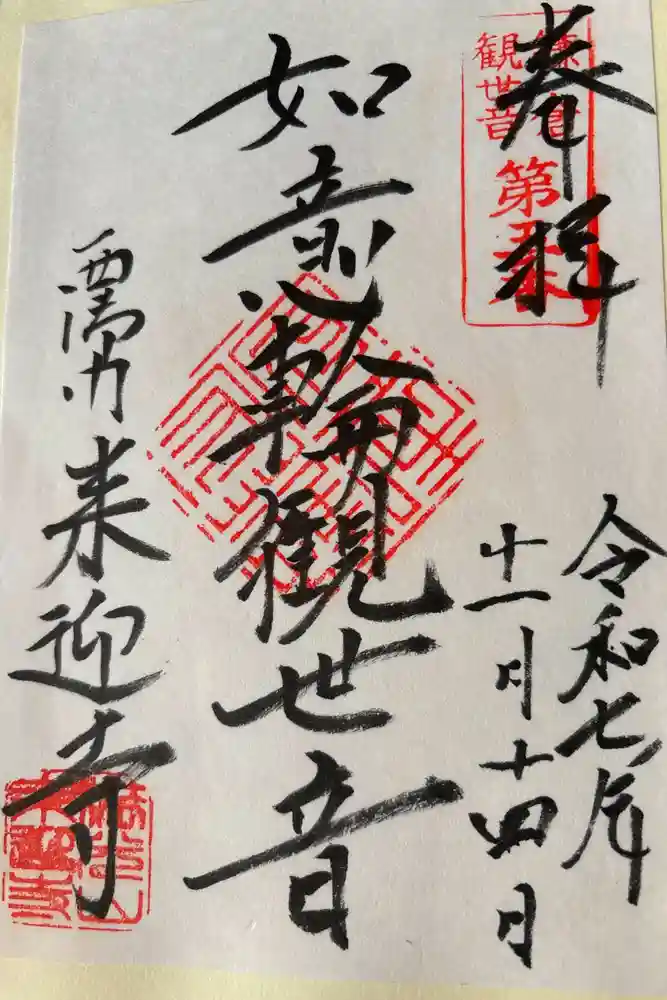 奉拝
鎌倉
観世音
第五番
令和七年
十一月十四日
如意輪観世音
西御門 来迎寺